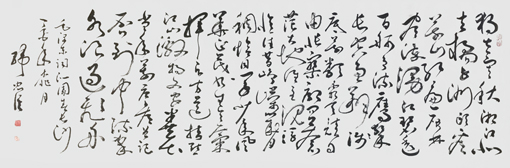 独立寒秋湘江北
去橘子洲头看
万山红遍层林
尽染漫江碧透
百舸争流鹰击
长空鱼翔浅
底万类霜天竞自
由怅寥廓问苍
茫大地谁主沉
忆往昔峥嵘岁月
稠恰同学少年风
华正茂书生意气
挥斥方遒指点
江山激扬文字粪土
当年万户侯曾记
否到中流击
水浪遏飞舟
毛泽东词沁园春长沙